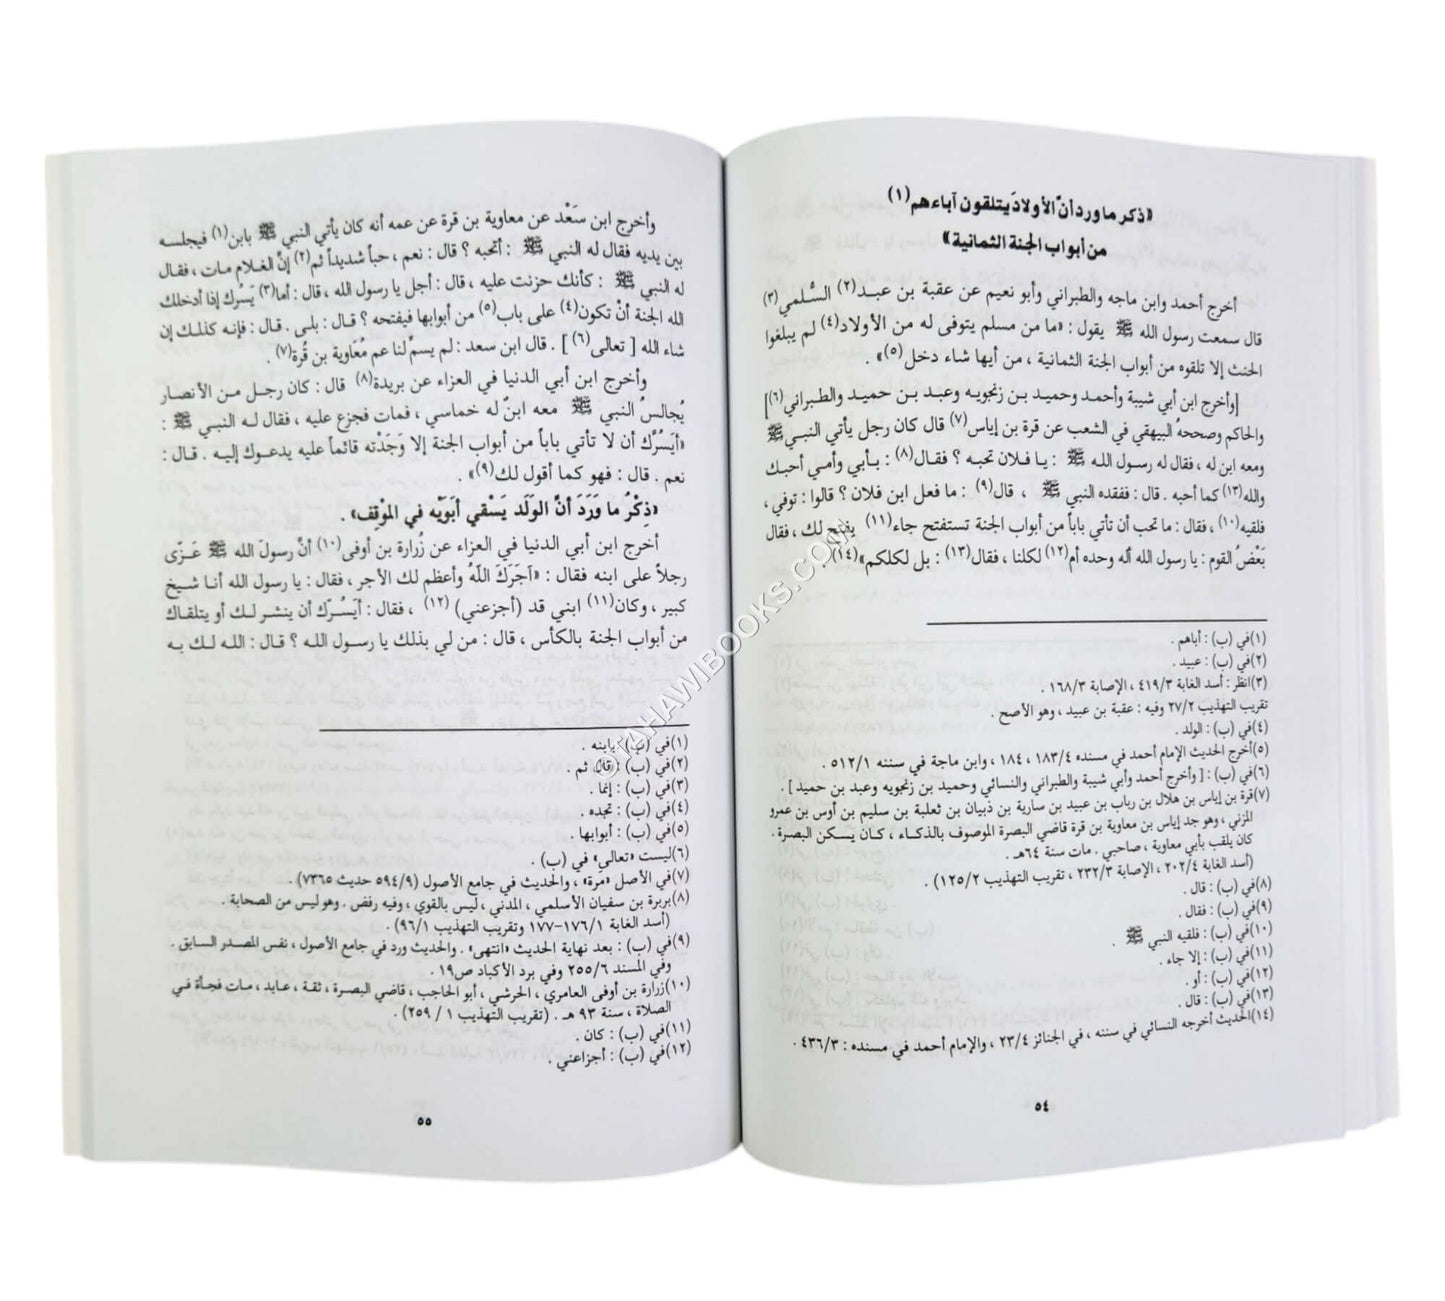 «ذكر ما ورد أنّ الأولادَ يتلقون آباءهم(١)
من أبواب الجنة الثمانية»
أخرج أحمد وابن ماجه والطبراني وأبو نعيم عن عقبة بن عبد(٢) السُّلمي(٣)
قال سمعت رسول الله ﷺ يقول : «ما من مسلم يتوفى له من الأولاد(٤) لم يبلغوا
الحنث إلا تلقوه من أبواب الجنة الثمانية ، من أيها شاء دخل(٥)» .
[وأخرج ابن أبي شيبة وأحمد وحميد بن زنجويه وعبد بن حميد والطبراني(٦)]
والحاكم وصححهُ البيهقي في الشعب عن قرة بن إياس(٧) قال كان رجل يأتي النبي ﷺ
ومعه ابن له ، فقال له رسول الله ﷺ : يا فلان تحبه ؟ فقال(٨) : بأبي وأمي أحبك
والله(١٣) كما أحبه . قال : ففقده النبي ﷺ ، قال(٩) : ما فعل ابن فلان ؟ قالوا : توفي ،
فلقيه(١٠) ، فقال : ما تحب أن تأتي باباً من أبواب الجنة تستفتح جاء(١١) يفتح لك ، فقال
بَعْضُ القوم : يا رسول الله أله وحده أم(١٢) لكلنا ، فقال(١٣) : بل لكلكم»(١٤) .
(١)في (ب) : أباهم .
(٢)في (ب) : عبيد .
(٣)انظر : أسد الغابة ٤١٩/٣ ، الإصابة ١٦٨/٣ .
تقريب التهذيب ٢٧/٢ وفيه : عقبة بن عبيد ، وهو الأصح .
(٤)في (ب) : الولد .
(٥)أخرج الحديث الإمام أحمد في مسنده ١٨٣/٤ ، ١٨٤ ، وابن ماجة في سننه ٥١٢/١ .
(٦)في (ب) : [ وأخرج أحمد وأبي شيبة والطبراني والنسائي وحميد بن زنجويه وعبد بن حميد ] .
(٧)قرة بن إياس بن هلال بن رباب بن عبيد بن سارية بن ذبيان بن ثعلبة بن سليم بن أوس بن عمرو
المزني ، وهو جد إياس بن معاوية بن قرة قاضي البصرة الموصوف بالذكاء ، كان يسكن البصرة .
كان يلقب بأبي معاوية ، صاحبي . مات سنة ٦٤هـ .
(أسد الغابة ٢٠٢/٤ ، الإصابة ٢٣٢/٣ ، تقريب التهذيب ١٢٥/٢) .
(٨)في (ب) : قال .
(٩)في (ب) : فقال .
(١٠)في (ب) : فلقيه النبي ﷺ .
(١١)في (ب) : إلا جاء .
(١٢)في (ب) : أو .
(١٣)في (ب) : قال .
(١٤)الحديث أخرجه النسائي في سننه ، في الجنائز ٢٣/٤ ، والإمام أحمد في مسنده : ٤٣٦/٣ .
٥٤
وأخرج ابن سَعْد عن معاوية بن قرة عن عمه أنه كان يأتي النبي ﷺ بابن(١) فيجلسه
بين يديه فقال له النبي ﷺ : أتحبه ؟ قال : نعم ، حباً شديداً ثم(٢) إنَّ الغلام مات ، فقال
له النبي ﷺ : كأنك حزنت عليه ، قال : أجل يا رسول الله ، قال : أما(٣) يَسُرك إذا أدخلك
الله الجنة أنْ تكون(٤) على باب(٥) من أبوابها فيفتحه ؟ قال : بلى . قال : فإنه كذلك إن
شاء الله [ تعالى(٦) ] . قال ابن سعد : لم يسمِّ لنا عم مُعَاوية بن قُرة(٧) .
وأخرج ابن أبي الدنيا في العزاء عن بريدة(٨) قال : كان رجل من الأنصار
يُجالسُ النبي ﷺ معه ابنٌ له خماسي ، فمات فجزع عليه ، فقال له النبي ﷺ :
«أيَسُرّك أن لا تأتي باباً من أبواب الجنة إلا وَجَدْته قائماً عليه يدعوك إليه . قال :
نعم . قال : فهو كما أقول لك(٩)» .
«ذِكْرُ ما وَرَدَ أنَّ الوَلَد يَسْقي أبَوَيْه في المْوقِف» .
أخرج ابن أبي الدنيا في العزاء عن زُرارة بن أوفى(١٠) أنَّ رسولَ الله ﷺ عَزّى
رجلاً على ابنه فقال : «آجَرَكَ اللّهُ وأعظم لك الأجر ، فقال : يا رسول الله أنا شيخ
كبير ، وكان(١١) ابني قد (أجزعني) (١٢) ، فقال : أيَسُرّك أن ينشر لك أو يتلقاك
من أبواب الجنة بالكأس ، قال : من لي بذلك يا رسول الله ؟ قال : الله لك به
(١)في (ب) : بابنه .
(٢)في (ب) : قال ثم .
(٣)في (ب) : إنما .
(٤)في (ب) : تجده .
(٥)في (ب) : أبوابها .
(٦)ليست «تعالى» في (ب) .
(٧)في الأصل «مرة» ، والحديث في جامع الأصول (٥٩٤/٩ حديث ٧٣٦٥) .
(٨)بربرة بن سفيان الأسلمي ، المدني ، ليس بالقوي ، وفيه رفض . وهو ليس من الصحابة .
(أسد الغابة ١٧٦/١-١٧٧ وتقريب التهذيب ٩٦/١) .
(٩)في (ب) : بعد نهاية الحديث «انتهى» . والحديث ورد في جامع الأصول ، نفس المصدر السابق .
وفي المسند ٢٥٥/٦ وفي برد الأكباد ص١٩ .
(١٠)زرارة بن أوفى العامري ، الحرشي ، أبو الحاجب ، قاضي البصرة ، ثقة ، عابد ، مات فجأة في
الصلاة ، سنة ٩٣ هـ . (تقريب التهذيب ١ / ٢٥٩) .
(١١)في (ب) : كان .
(١٢)في (ب) : أجزاعني .
٥٥
©TAHAWIBOOKS.COM